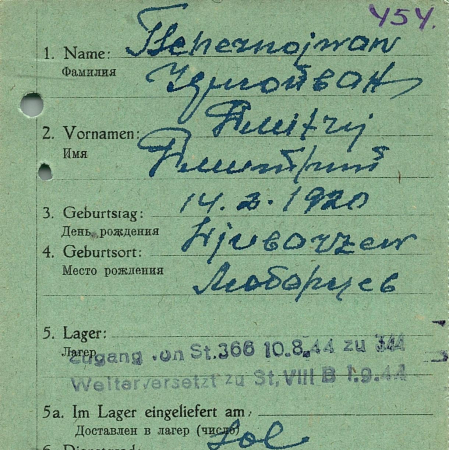 454.
1. Name: Tschernojwan
Фамилия Чернойван
2. Vornamen: Dmitrij
Имя Дмитрий
3. Geburtstag: 14. 2. 1920
День рождения
4. Geburtsort: Ljubarzew
Место рождения Любарцев
5. Lager:
Лагерь
Zugang von St. 366 10.8.44 zu 344
Weiterversetzt zu St. VIII B 1.9.44
5a. Im Lager eingeliefert am
Доставлен в лагерь (число)
Sol